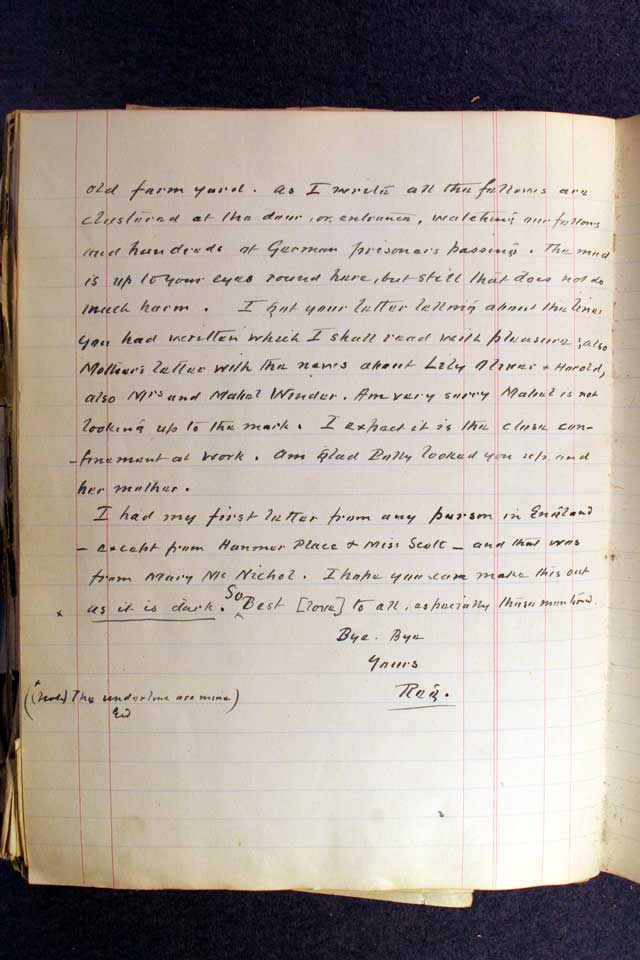 old farm yard. As I write all the fellows are
clustered at the door, or, entrance, watching our fellows
and hundreds of German prisoners passing. The mud
is up to your eyes round here, but still that does not do
much harm. I got your letter telling about the lines
you had written which I shall read with pleasure; also
Mother's letter with the news about Lily Oliver & Harold,
also Mrs and Mabel Winder. Am very sorry Mabel is not
looking up to the mark. I expect it is the close con-
-finement at work. Am glad Dolly looked you up and
her mother.
I had my first letter from any person in England
- except from Hanmer Place & Miss Scott - and that was
from Mary Mc Nichol. I hope you can make this out
x as it is dark. So Best [love] to all, especially those mentioned.
Bye. Bye
Yours
Reg.
(x (Note) The underline are mine)
Ed